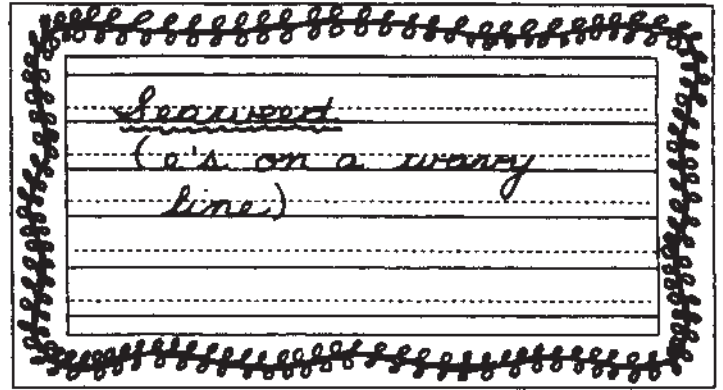 Seaweed
(e's on a wavy
line)